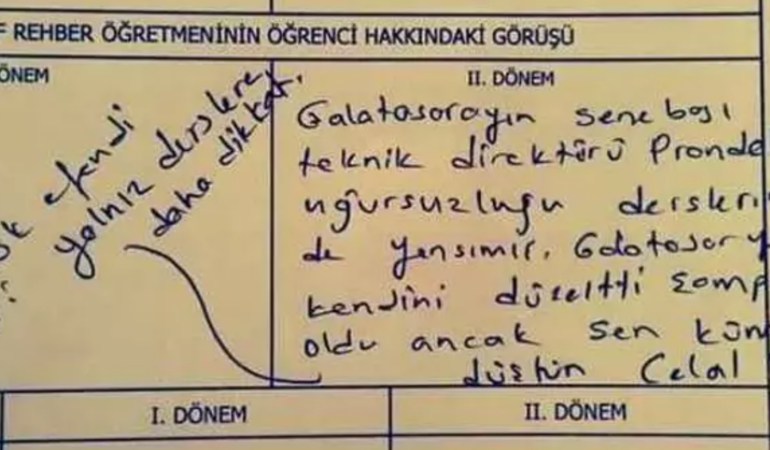 REHBER ÖĞRETMENİNİN ÖĞRENCİ HAKKINDAKİ GÖRÜŞÜ
ÖNEM
II. DÖNEM
efendi
yalnız derslere
daha dikkat.
Galatasarayın sene başı
teknik direktörü Prande
uğursuzluğu dersleri
de yansımış. Galatasaray
kendini düzeltti şamp
oldu ancak sen küm
düştün Celal
I. DÖNEM
II. DÖNEM